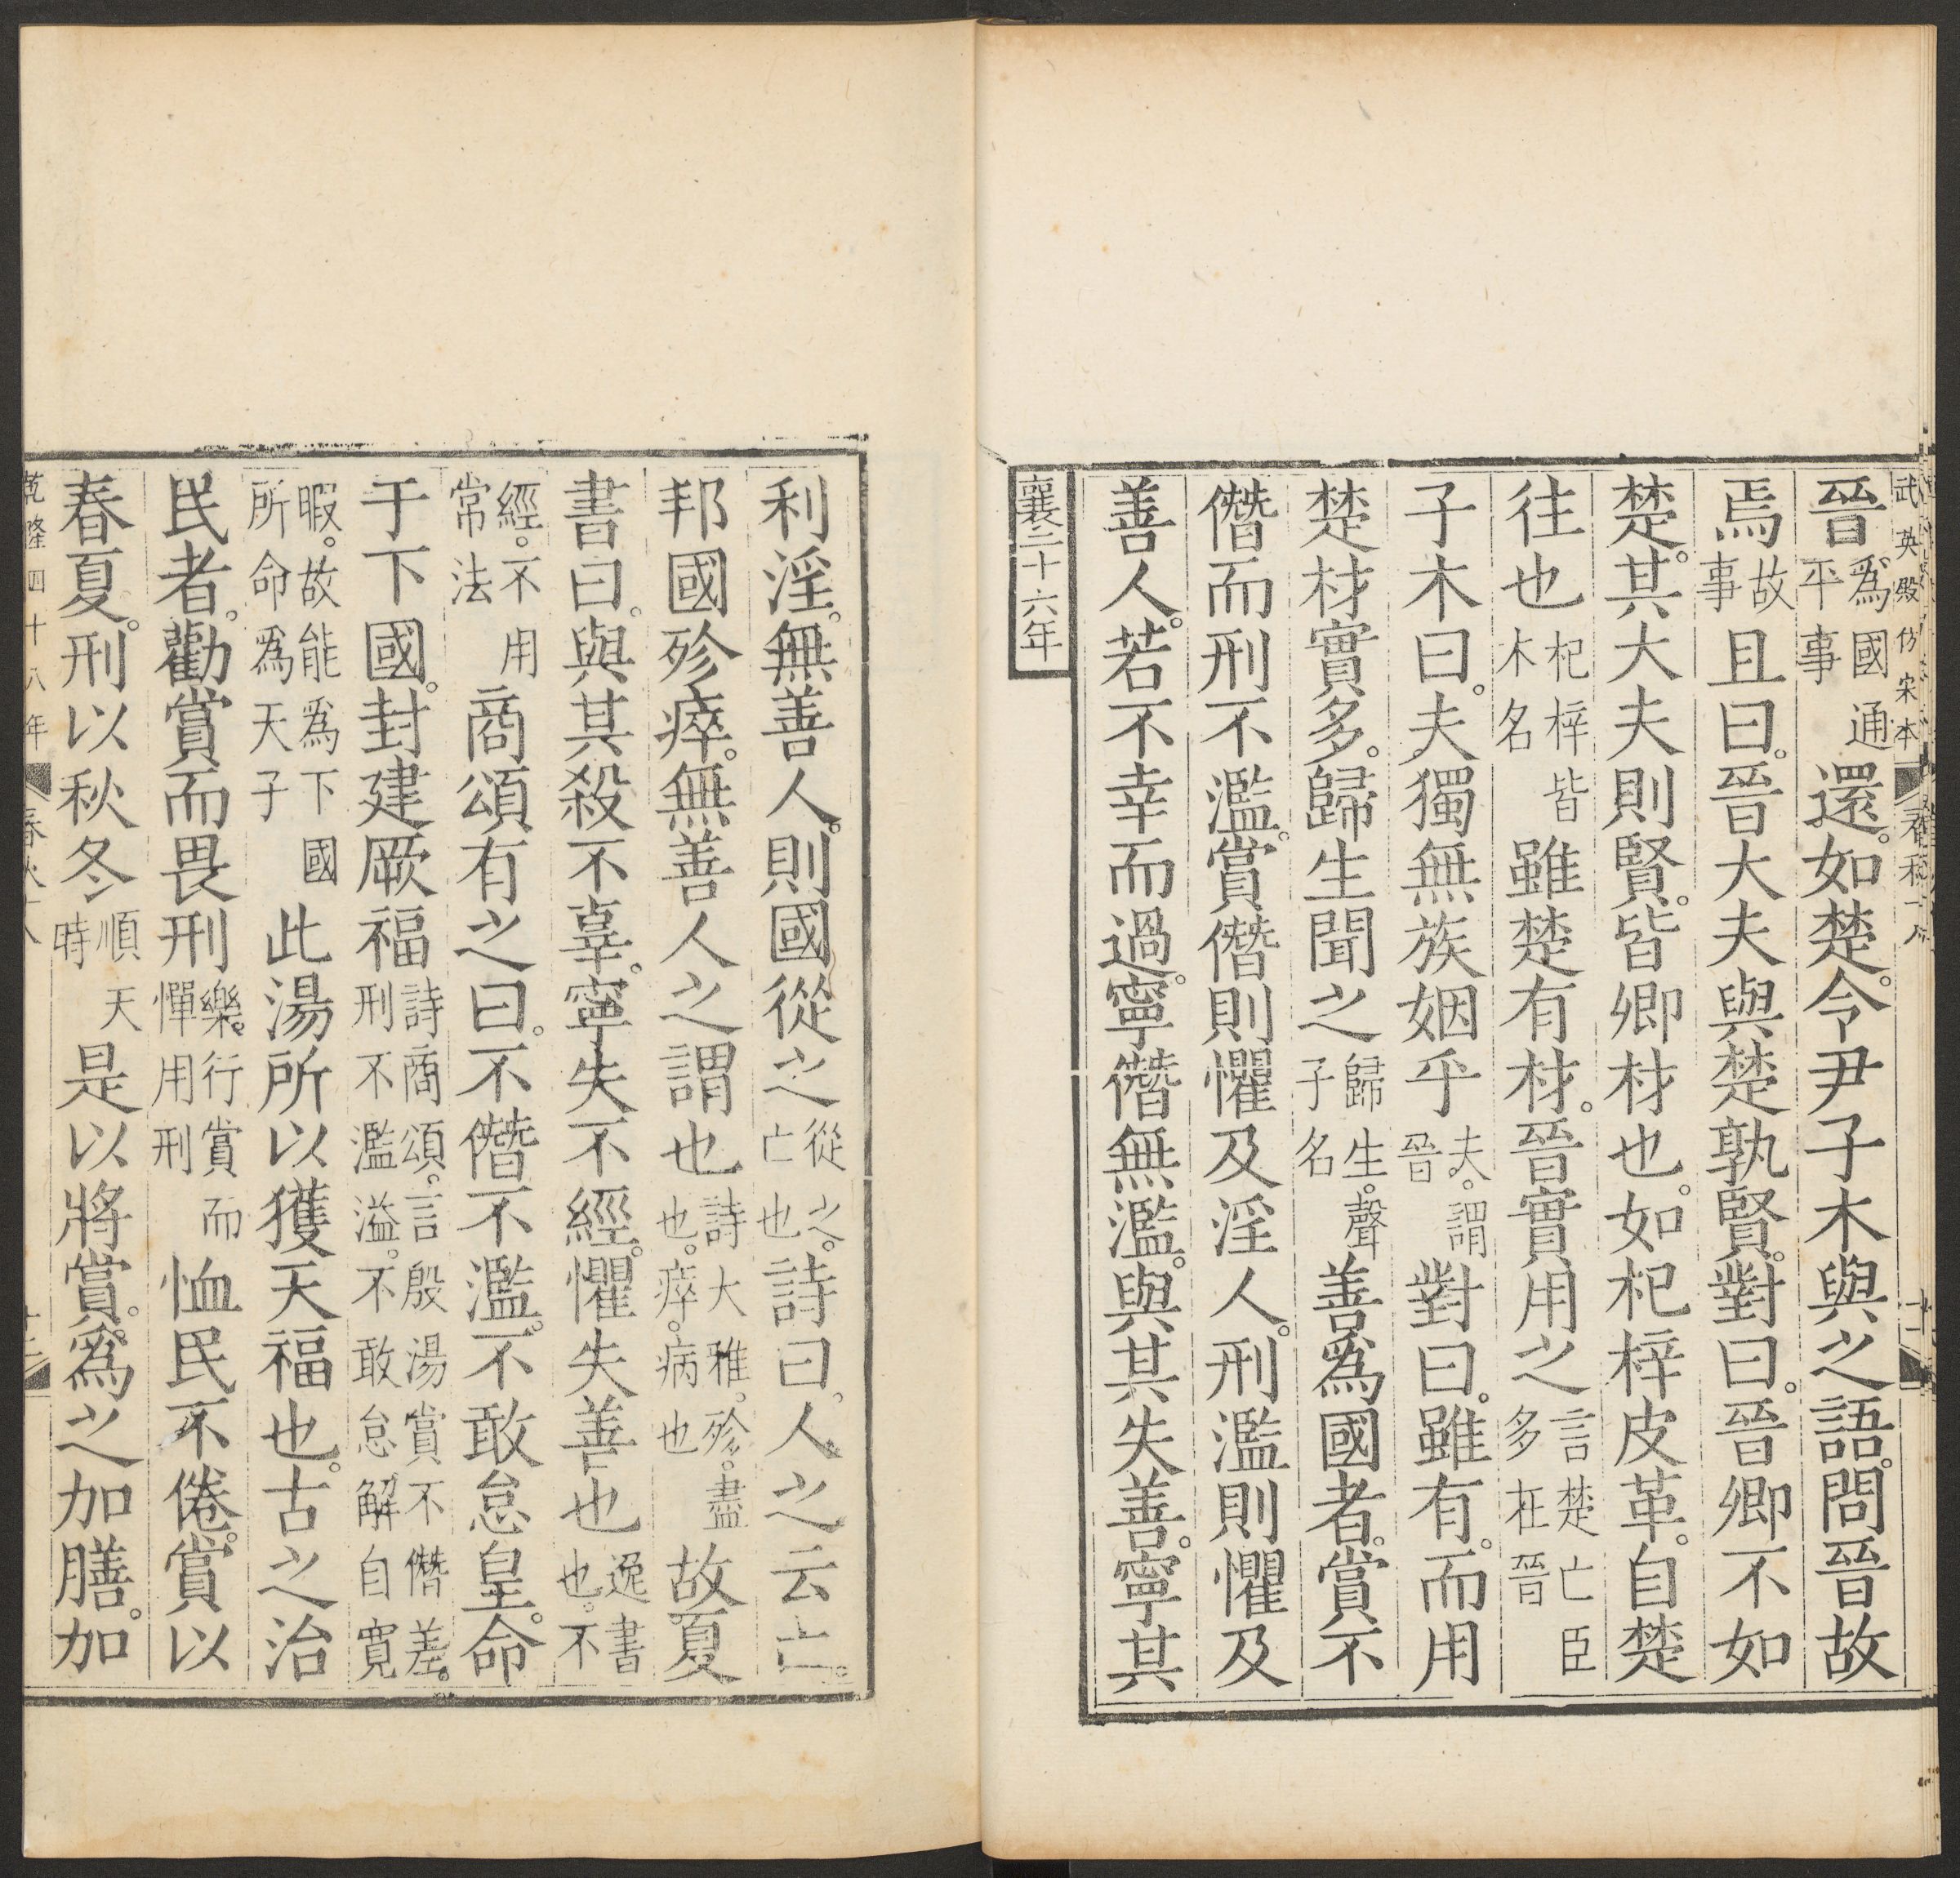 武英殿仿宋本 春秋十八 十一
晉爲國通平事還。如楚。令尹子木與之語。問晉故
焉故事且曰。晉大夫與楚孰賢。對曰。晉卿不如
楚。其大夫則賢。皆卿材也。如杞梓皮革。自楚
往也杞梓皆木名雖楚有材。晉實用之言楚亡臣多在晉
子木曰。夫獨無族姻乎夫。謂晉對曰。雖有。而用
楚材實多。歸生聞之歸生。聲子名善爲國者。賞不
僭而刑不濫。賞僭則懼及淫人。刑濫則懼及
善人。若不幸而過。寧僭無濫。與其失善。寧其
襄二十六年
利淫。無善人。則國從之從之。亡也詩曰。人之云亡。
邦國殄瘁。無善人之謂也詩大雅。殄。盡也。瘁。病也故夏
書曰。與其殺不辜。寧失不經。懼失善也逸書也。不
經。不用常法商頌有之曰。不僭不濫。不敢怠皇。命
于下國。封建厥福詩商頌。言殷湯賞不僭差。刑不濫溢。不敢怠解自寬
暇。故能爲下國所命爲天子此湯所以獲天福也。古之治
民者。勸賞而畏刑樂。行賞而憚用刑恤民不倦。賞以
春夏。刑以秋冬順天時是以將賞。爲之加膳。加
乾隆四十八年 春秋十八 十二